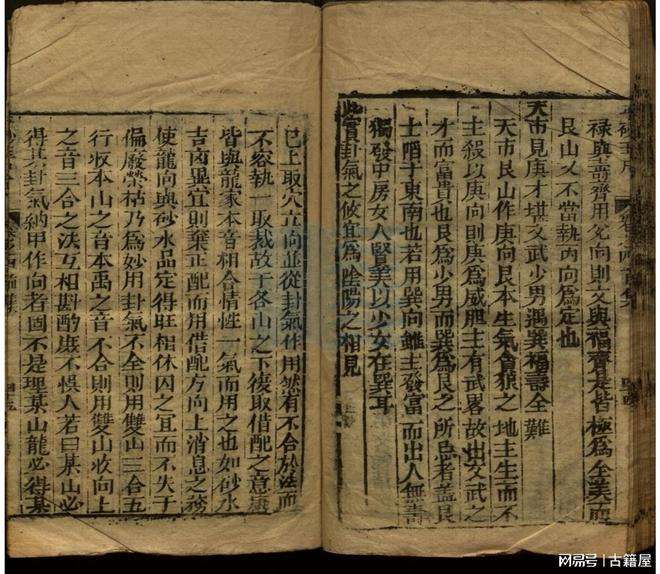 祿與壽齊用兊向則文與福齊是皆極爲全美而
艮山又不當執丙向爲定也
天市見庚才堪文武少男遇巽福壽全難
天市艮山作庚向艮本生氣貪狼之地主生而不
主殺以庚向則庚爲威胆主有武畧故出文武之
才而富貴也艮爲少男而巽爲艮之所忌者蓋艮
士陷于東南也若用巽向雖主發富而出人無壽
獨發中房女人賢美以少女在巽耳
此實卦氣之攸宜爲陰陽之相見
已上取穴立向並從卦氣作用然有不合於法而
不容執一取裁故于各山之下復取借配之意
皆與龍家本音相合情性一氣而用之也如砂水
吉凶異宜則棄正配而用借配方向上消息之務
使龍向與砂水品定得旺相休囚之宜而不失于
偏廢榮枯乃爲妙用卦氣不全則用雙山三合五
行收本山之音本音不合則用雙山收向上
之音三合之法互相斟酌庶不悞人若曰某山必
得某卦氣納甲作向者固不是理某山龍必得某
網易号 | 古籍屋